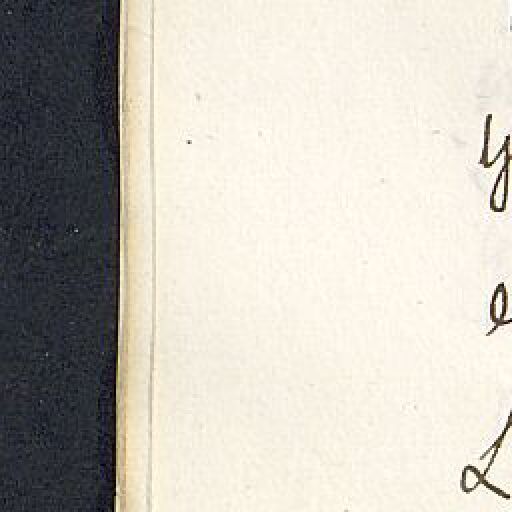 y
e
L